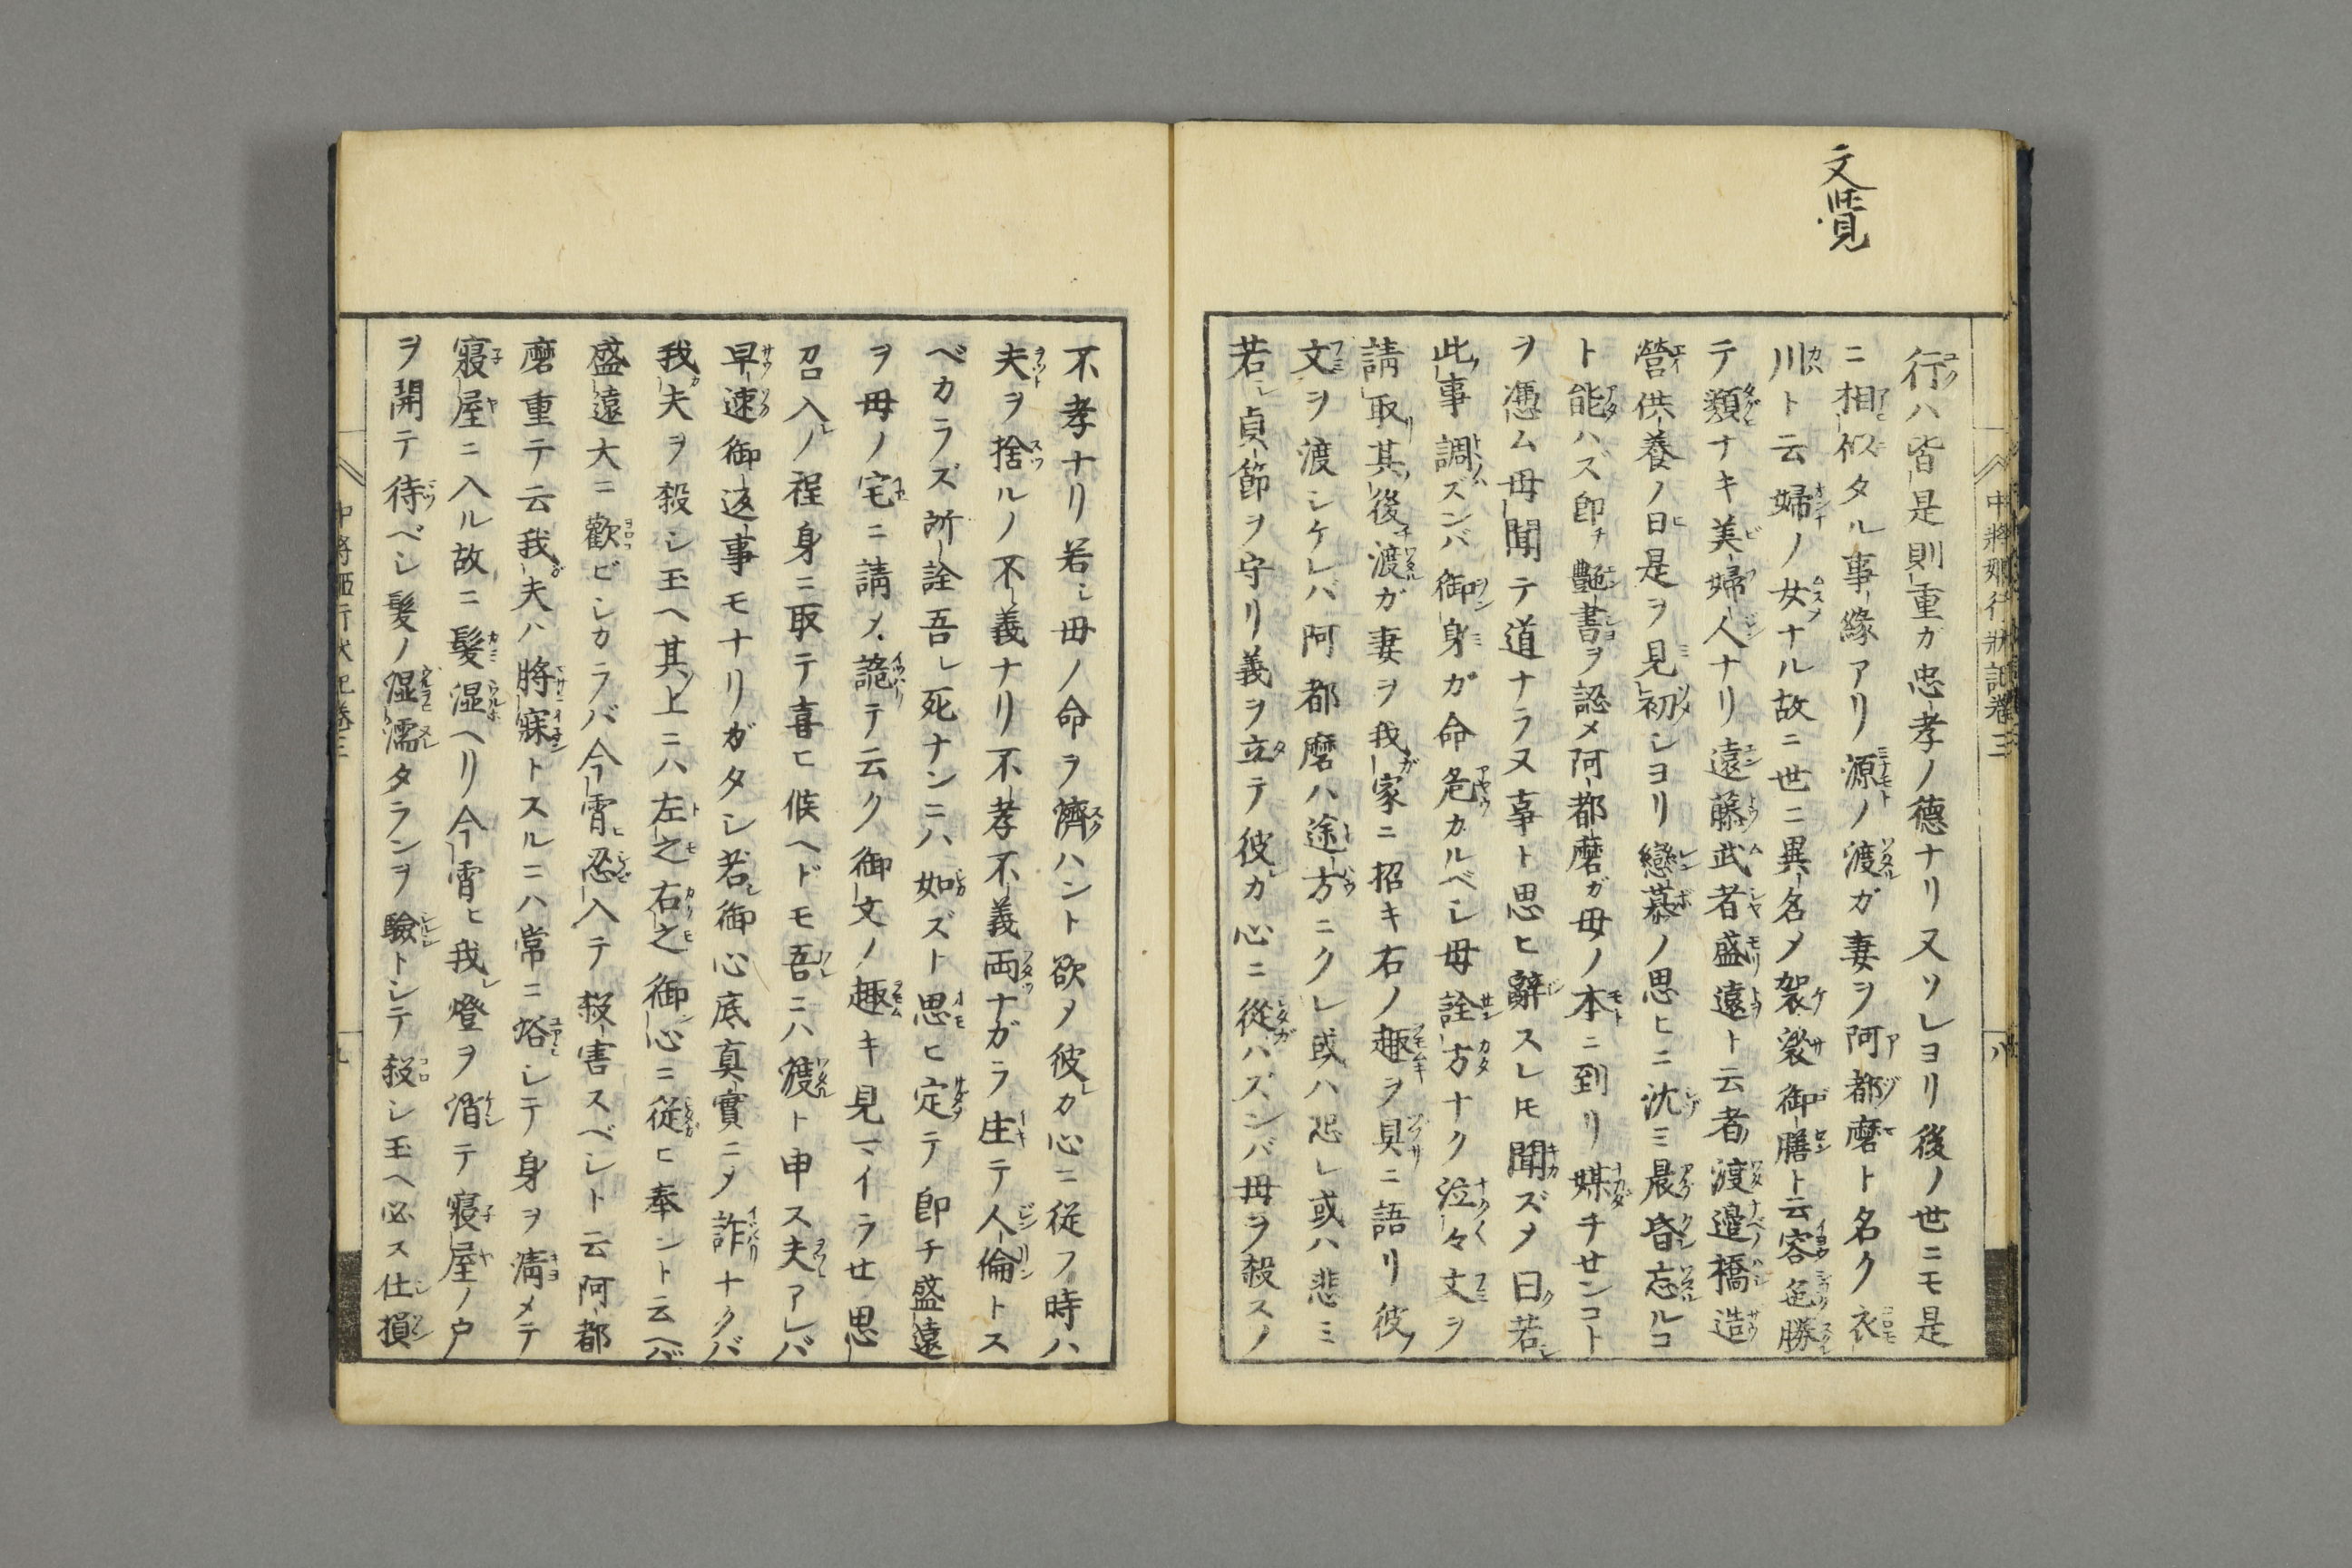 文覺
中將姬行狀記卷三
八
行ハ皆是則重ガ忠孝ノ德ナリ又ソレヨリ後ノ世ニモ是
ニ相似タル事縁アリ源ノ渡ガ妻ヲ阿都磨ト名ク衣
川ト云婦ノ女ナル故ニ世ニ異名メ袈裟御膳ト云容色勝
テ類ナキ美婦人ナリ遠藤武者盛遠ト云者渡邉橋造
營供養ノ日是ヲ見初シヨリ戀慕ノ思ヒニ沈ミ晨昏忘ルコ
ト能ハズ即チ艶書ヲ認メ阿都磨ガ母ノ本ニ到リ媒チサンコト
ヲ憑ム母聞テ道ナラヌ事ト思ヒ辭スレ𪜈聞ズメ曰若
此事調ズンバ御身ガ命危カルベシ母詮方ナク泣々文ヲ
請取其後渡ガ妻ヲ我家ニ招キ右ノ趣ヲ具ニ語リ彼
文ヲ渡シケレバ阿都磨ハ途方ニクレ或ハ忌レ或ハ悲ミ
若シ貞節ヲ守リ義ヲ立テ彼カ心ニ從ハズンバ母ヲ殺スノ
不孝ナリ若シ母ノ命ヲ濟ハント欲メ彼カ心ニ従フ時ハ
夫ヲ捨ルノ不義ナリ不孝不義両ナガラ庄テ人倫トス
ベカラズ所詮吾レ死ナンニハ如ズト思ヒ定テ即チ盛遠
ヲ母ノ宅ニ請メ詭テ云ク御文ノ趣キ見マイラセ思
召入ノ程身ニ取テ喜ヒ候ヘドモ吾ニハ渡ト申ス夫アレバ
早速御返事モナリガタシ若御心底真實ニメ詐ナクバ
我夫ヲ殺シ玉ヘ其上ニハ左之右之御心ニ従ヒ奉ント云ヘバ
盛遠大ニ歡ビシカラバ今霄忍入テ殺害スベシト云阿都
磨重テ云我夫ハ將寐トスルニハ常ニ浴シテ身ヲ清メテ
寝屋ニ入ル故ニ髪湿ヘリ今霄ヒ我燈ヲ滑テ寝屋ノ戸
ヲ開テ待ベシ髪ノ湿濡タランヲ驗トシテ殺シ玉ヘ必ス仕損
中將姬行狀記卷三
九